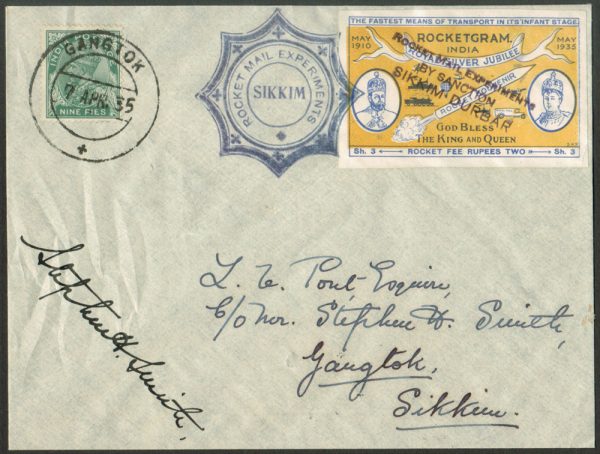 GANGTOK
7 APR. 35
NINE PIES
ROCKET MAIL EXPERIMENTS
SIKKIM
THE FASTEST MEANS OF TRANSPORT IN ITS INFANT STAGE
MAY 1910
ROCKETGRAM.
MAY 1935
INDIA
SILVER JUBILEE
ROCKET MAIL EXPERIMENTS
BY SANCTION
SIKKIM DURBAR
ROCKET SOUVENIR
GOD BLESS
THE KING AND QUEEN
Sh. 3 ROCKET FEE RUPEES TWO Sh. 3
Stephen H. Smith,
L. E. Pont Esquire,
C/o Mr. Stephen H. Smith,
Gangtok,
Sikkim.